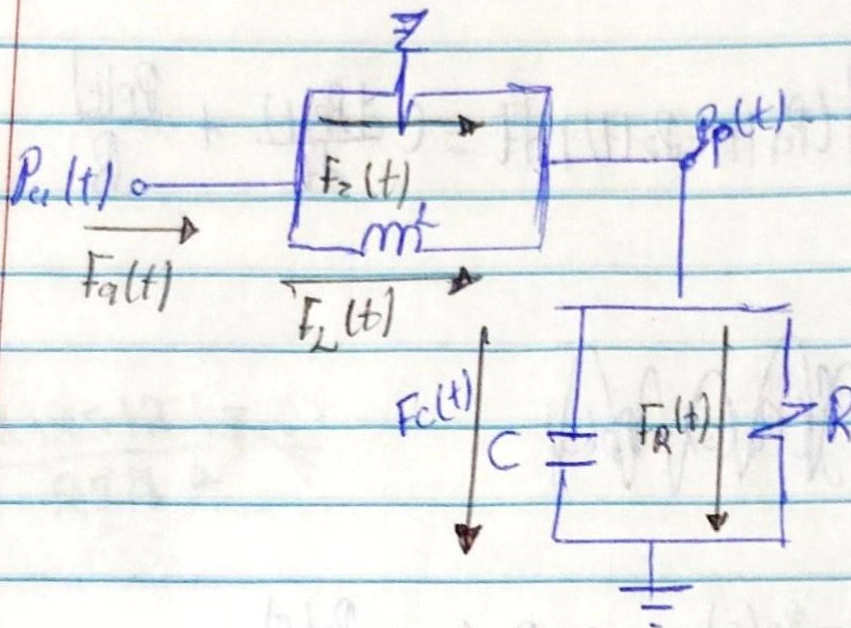 Z
Pa(t)
Fz(t)
Pp(t)
Fa(t)
L
FL(t)
Fc(t)
C
FR(t)
R